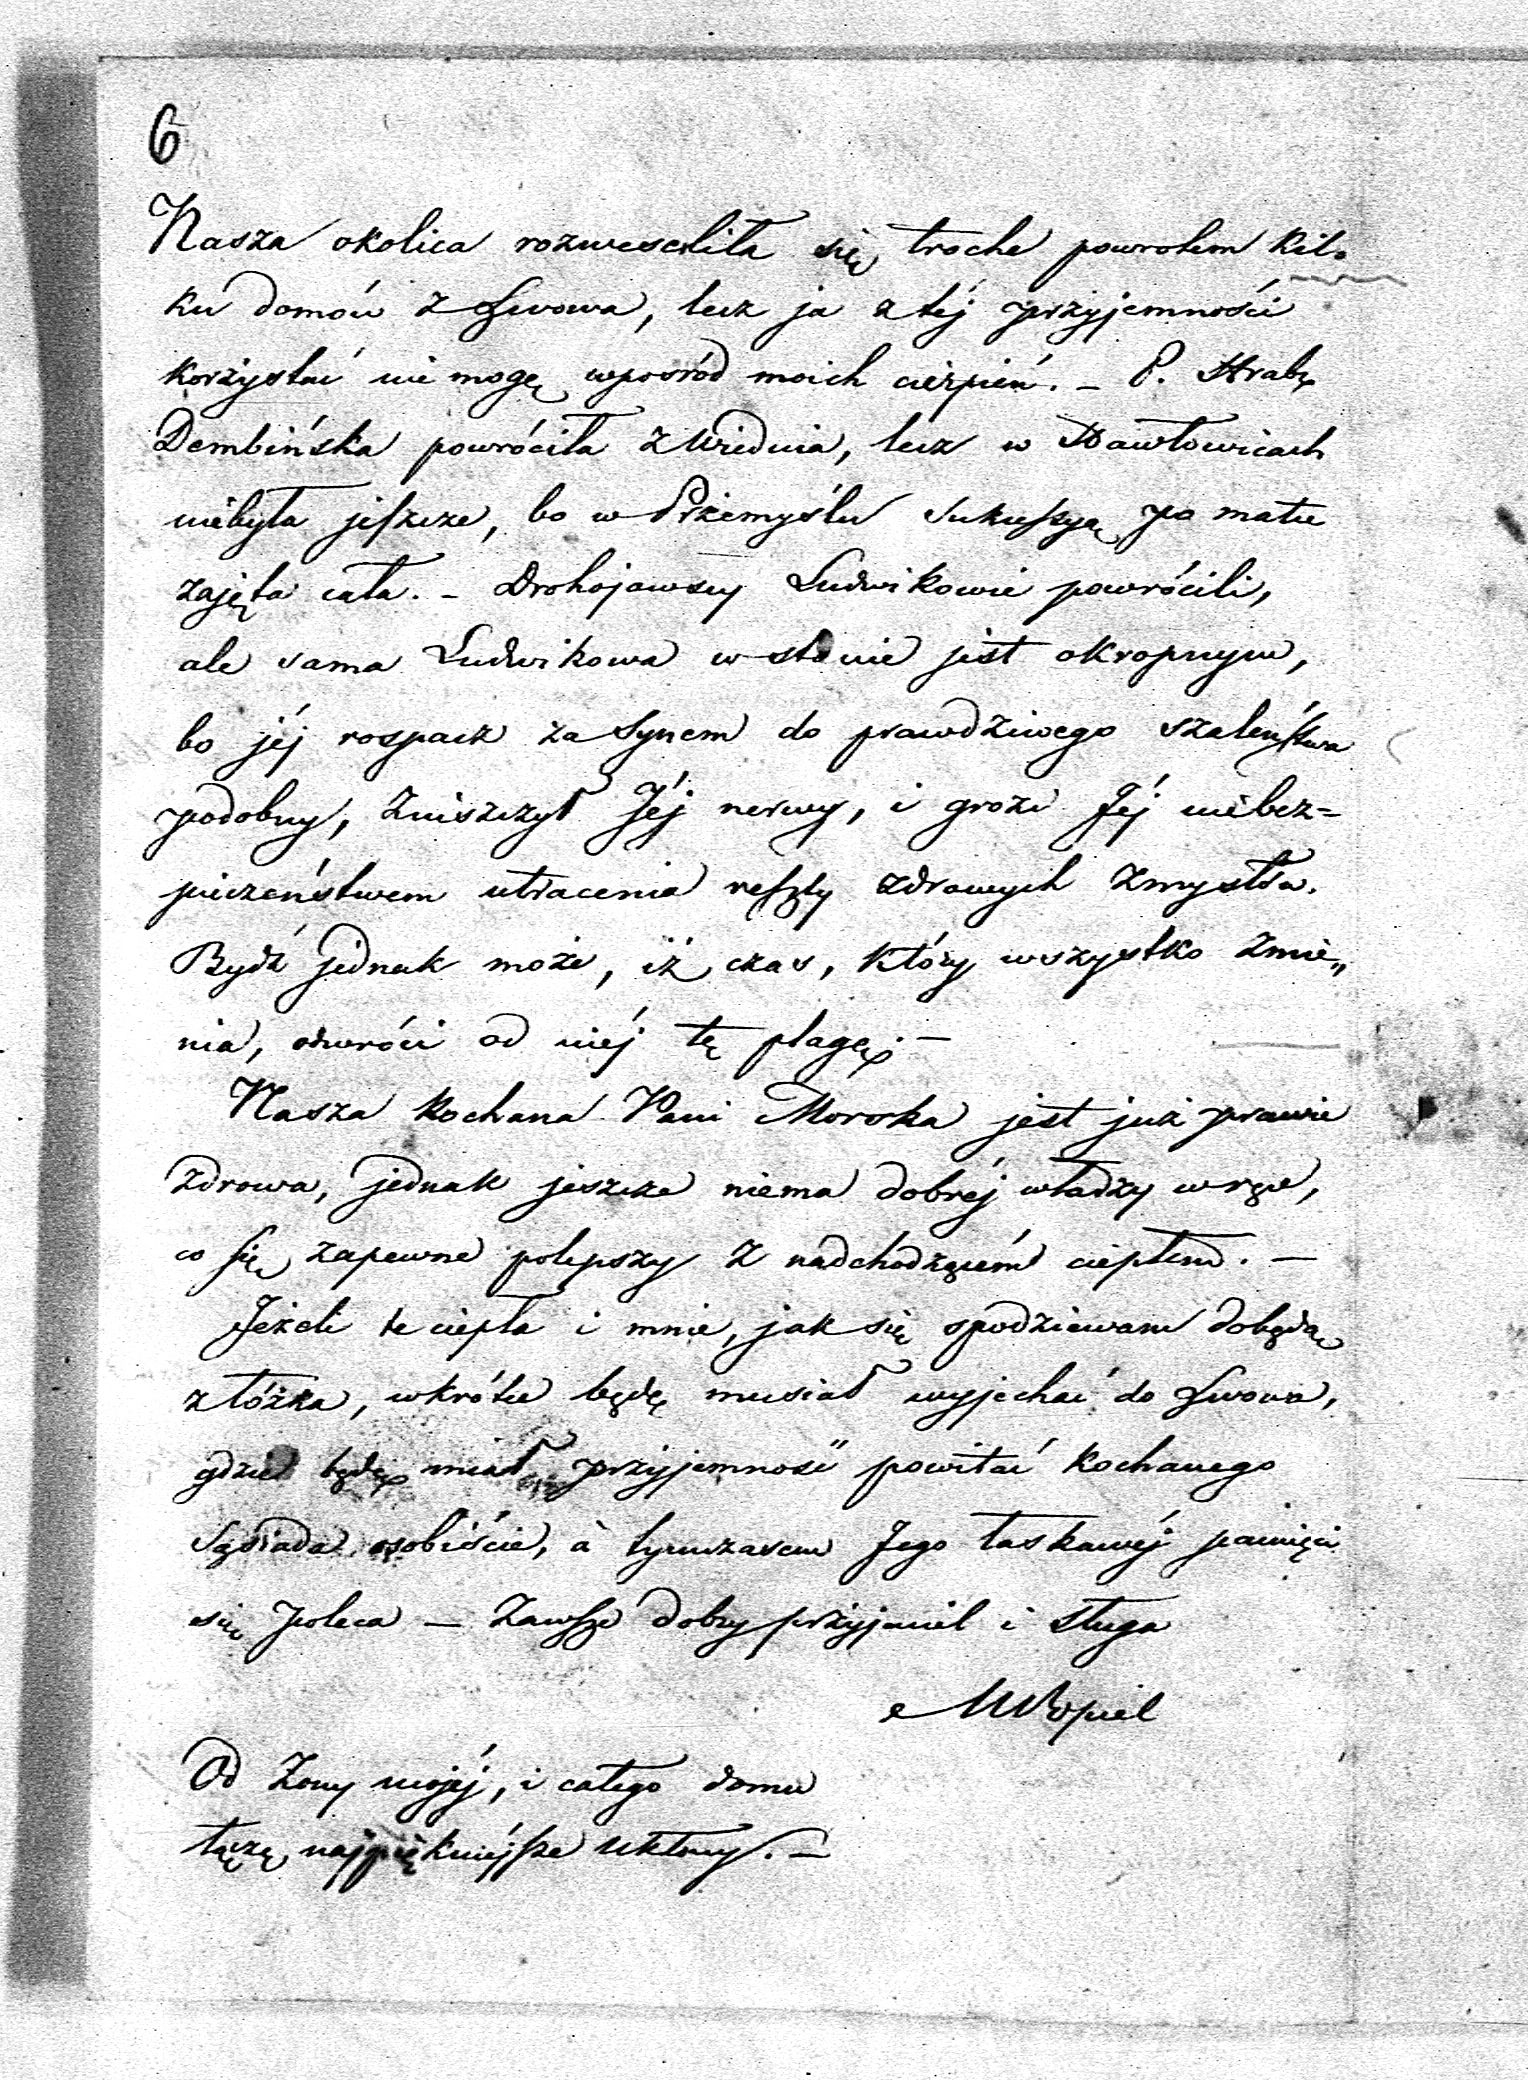 6
Nasza okolica rozweseliła się troche powrotem kil-
ku domów z Lwowa, lecz ja z téj przyjemności
korzystać nie mogę wpośród moich cierpień. – P. Hrab.
Dembińska powróciła z Wiednia, lecz w Nawłowicach
niebyła jeszcze, bo w Przemyślu sukcessyą po matce
zajęta cała. – Drohojowscy Ludwikowie powrócili,
ale sama Ludwikowa w stanie jest okropnym,
bo jéj rospacz za synem do prawdziwego szaleństwa
podobny, zniszczył Jéj nerwy, i grozi Jéj niebez=
pieczeństwem utracenia reszty zdrowych zmysłów.
Bydź jednak może, iż czas, który wszystko zmie„
nia, odwróci od niéj tę plagę. –
Nasza kochana Pani Morska jest już prawie
zdrowa, jednak jeszcze niema dobréj władzy w ręce,
co się zapewne polepszy z nadchodzącém ciepłem. –
Jeżeli te ciepła i mnie, jak się spodziewam dobędą
z łóżka, wkrótce będę musiał wyjechać do Lwowa,
gdzie będę miał przyjemność powitać kochanego
Sąsiada osobiście, à tymczasem Jego łaskawéj pamięci
się poleca – Zawsze dobry przyjaciel i sługa
Od Żony mojéj, i całego domu
łączę najpiękniéjsze ukłony. –